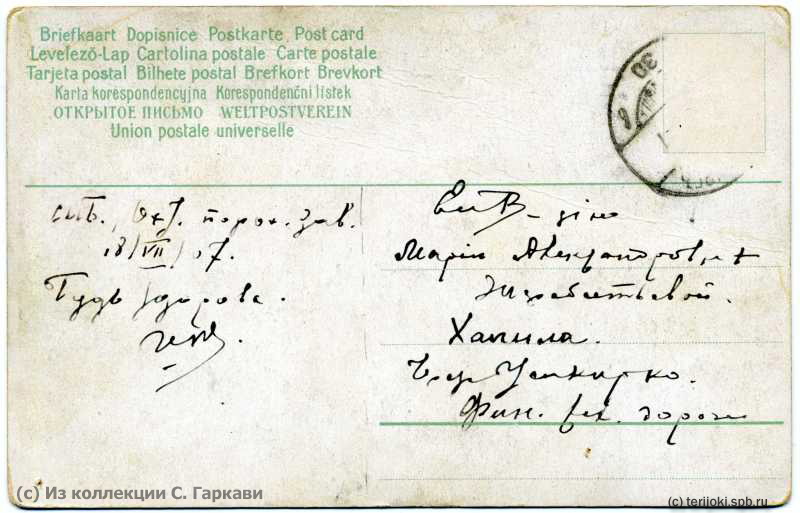 Briefkaart Dopisnice Postkarte Post card
Levelező-Lap Cartolina postale Carte postale
Tarjeta postal Bilhete postal Brefkort Brevkort
Karta korespondencyjna Korespondenční lístek
ОТКРЫТОЕ ПИСЬМО WELTPOSTVEREIN
Union postale universelle
30
8
спб., Охт. порох. зав.
18/VII/07.
Будь здорова.
Ея В-дію
Маріи Александровнѣ
Жеребятьевой.
Хапила.
Усикирко.
Фин. жел. дороги
(c) Из коллекции С. Гаркави
(c) terijoki.spb.ru